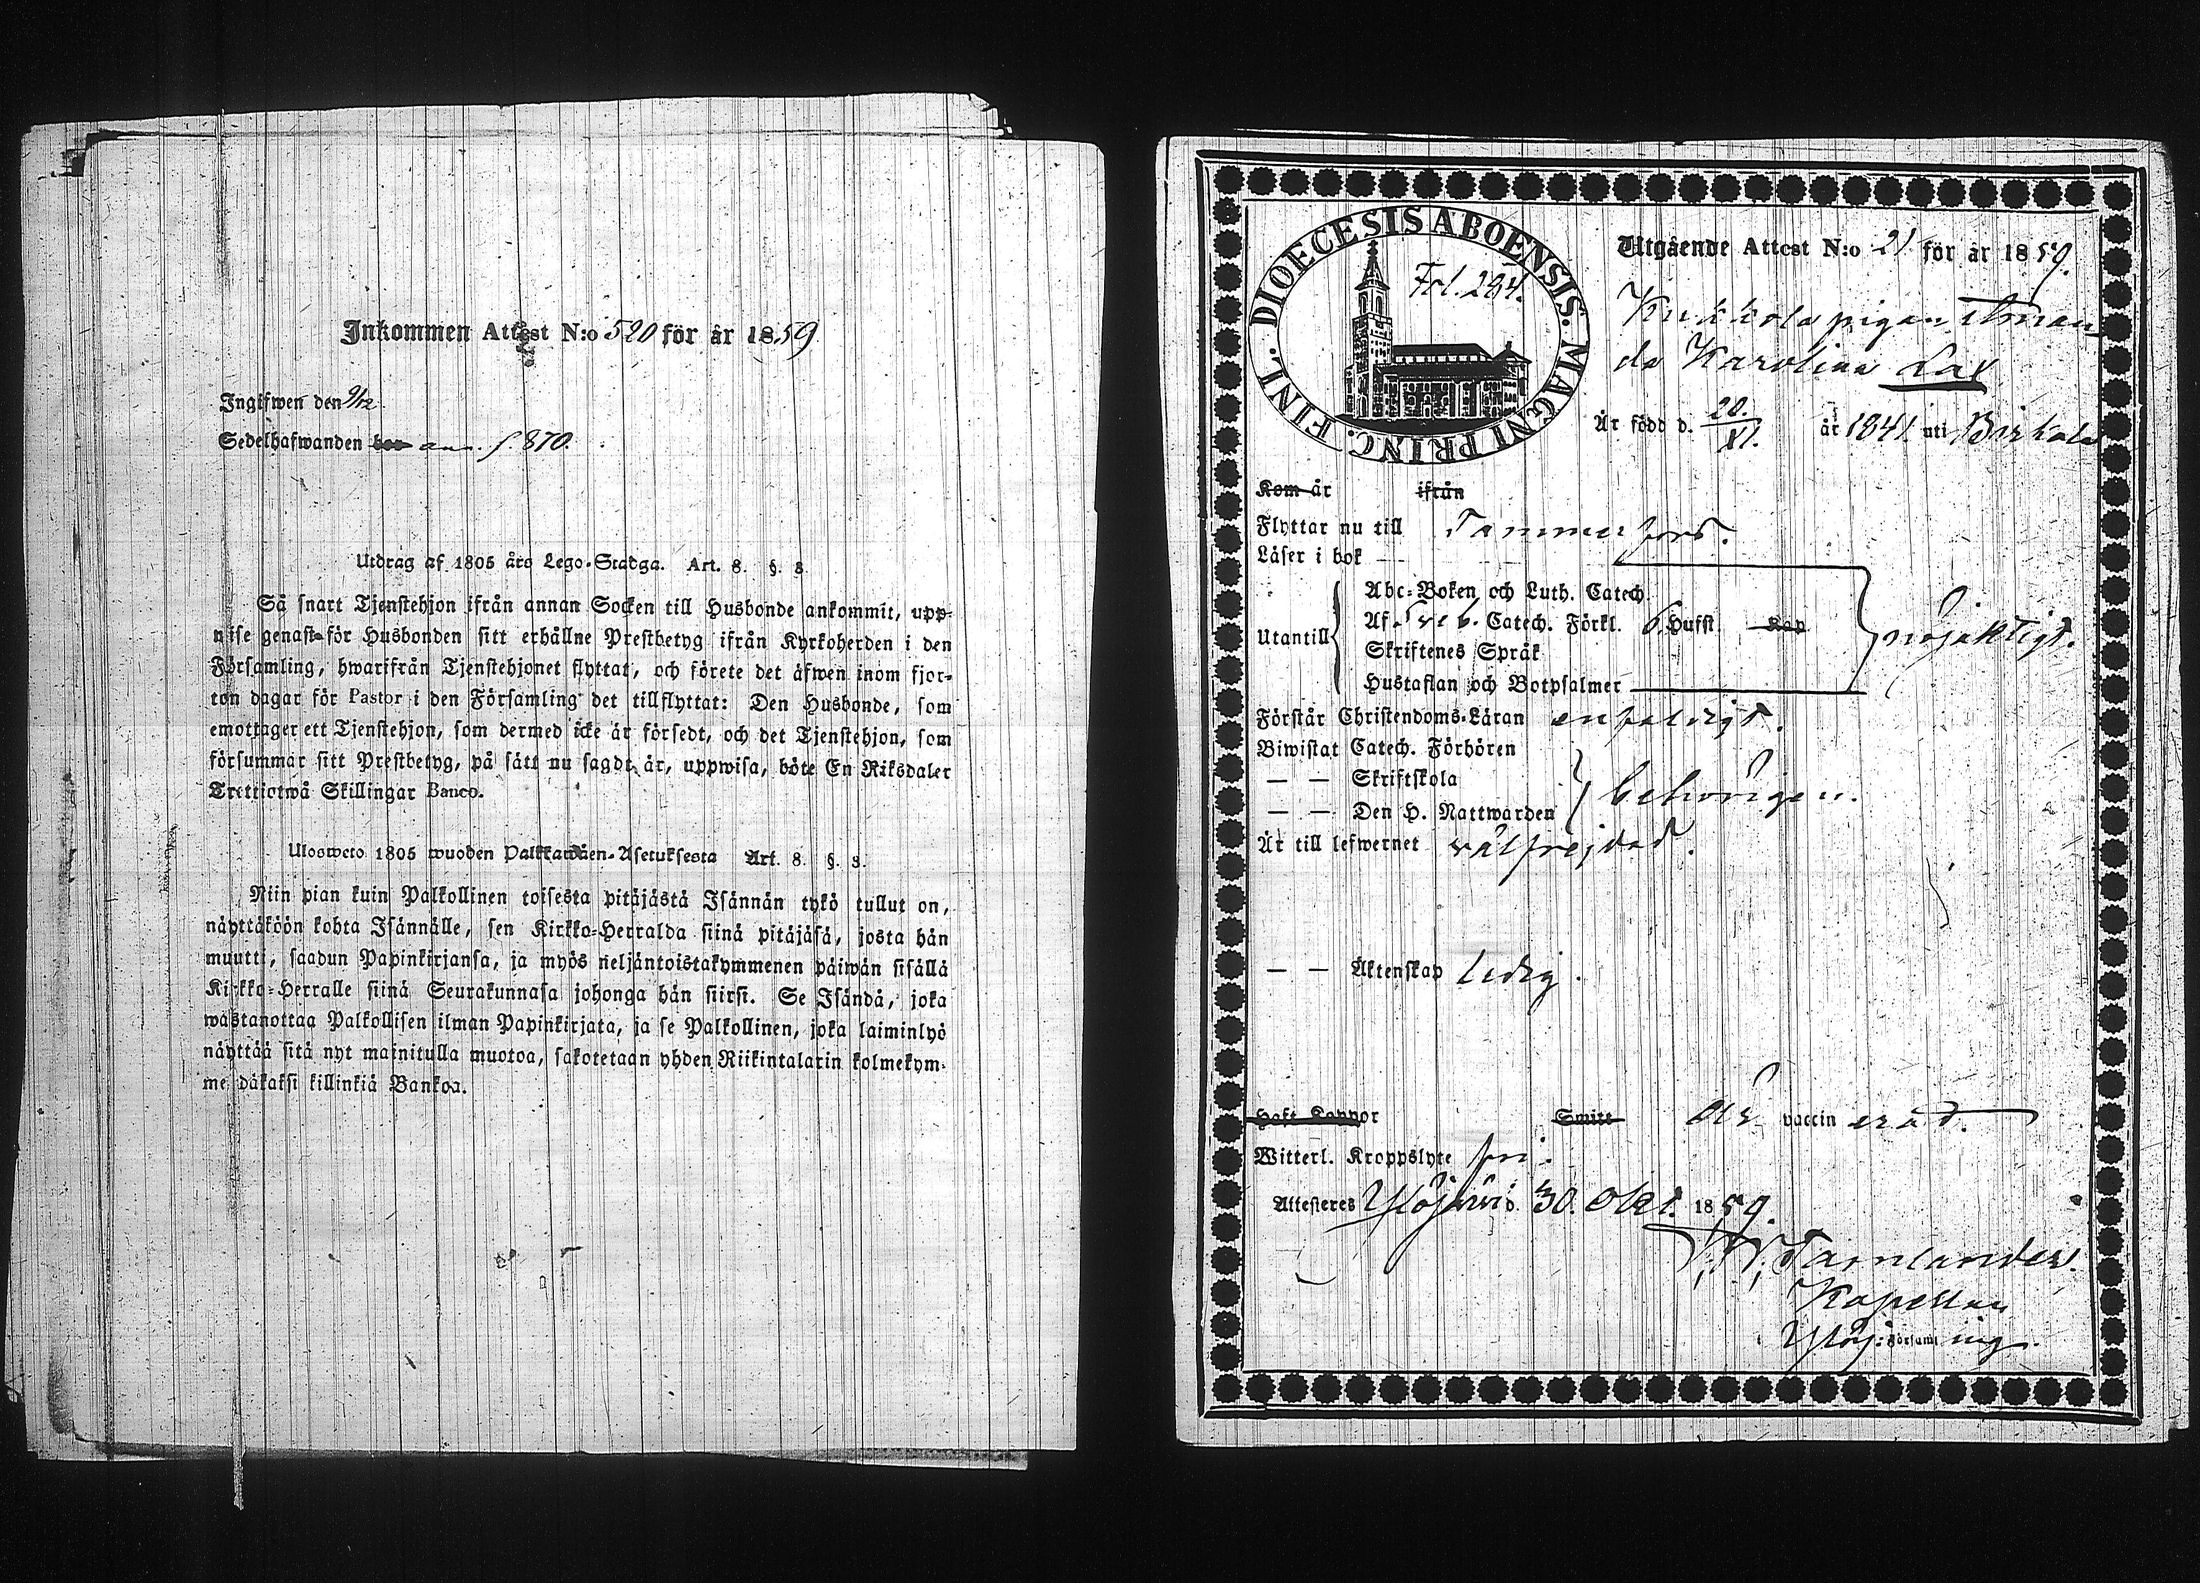 Inkommen Attest N:o 520 för år 1859
Ingifwen den 9/12
Sedelhafwanden ann. f. 870.
Utdrag af 1805 års Lego-Stadga. Art. 8. §. 8.
Så snart Tjenstehjon ifrån annan Socken till Husbonde ankommit, upp-
wise genast för Husbonden sitt erhållne Prestbetyg ifrån Kyrkoherden i den
Församling, hwarifrån Tjenstehjonet flyttat, och förete det äfwen inom fjor-
ton dagar för Pastor i den Församling det tillflyttat: Den Husbonde, som
emottager ett Tjenstehjon, som dermed icke är försedt, och det Tjenstehjon, som
försummar sitt Prestbetyg, på sätt nu sagdt är, uppwisa, böte En Riksdaler
Trettiotwå Skillingar Banco.
Ulosweto 1805 wuoden Palkkawäen-Asetuksesta Art. 8. §. 8.
Niin pian kuin Palkollinen toisesta pitäjästä Isännän tykö tullut on,
näyttäköön kohta Isännälle, sen Kirkko-Herralda siinä pitäjäsä, josta hän
muutti, saadun Papinkirjansa, ja myös neljäntoistakymmenen päiwän sisällä
Kirkko-Herralle siinä Seurakunnasa johonga hän siirsi. Se Isändä, joka
wastanottaa Palkollisen ilman Papinkirjata, ja se Palkollinen, joka laiminlyö
näyttää sitä nyt mainitulla muotoa, sakotetaan yhden Riikintalarin kolmekym-
me däkaksi killinkiä Bankoa.
DIOECESIS ABOENSIS. MAGNI PRINC. FINL.
Fol. 284.
Utgående Attest N:o 21 för år 1859.
Kukkola pigan Aman
da Karolina Lax
Är född d. 20./XI. år 1841. uti Birkala
Kom år ifrån
Flyttar nu till Tammerfors.
Läser i bok
Utantill
Abc-Boken och Luth. Catech.
Af Sveb. Catech. Förkl. 6. Hufst. Kap
Skriftenes Språk
Hustaflan och Botpsalmer
nöjaktigt.
Förstår Christendoms-Läran enfaldigt.
Biwistat Catech. Förhören
— — Skriftskola
— — Den H. Nattwarden
behörigen.
Är till lefwernet välfrejdad.
— — Äktenskap ledig.
Haft Koppor Smitt Är vaccinerad.
Witterl. Kroppslyte fri.
Attesteres Ylöjärvi d. 30. Okt. 1859.
Tamlander.
Kapellan
i Ylöj: Församling.